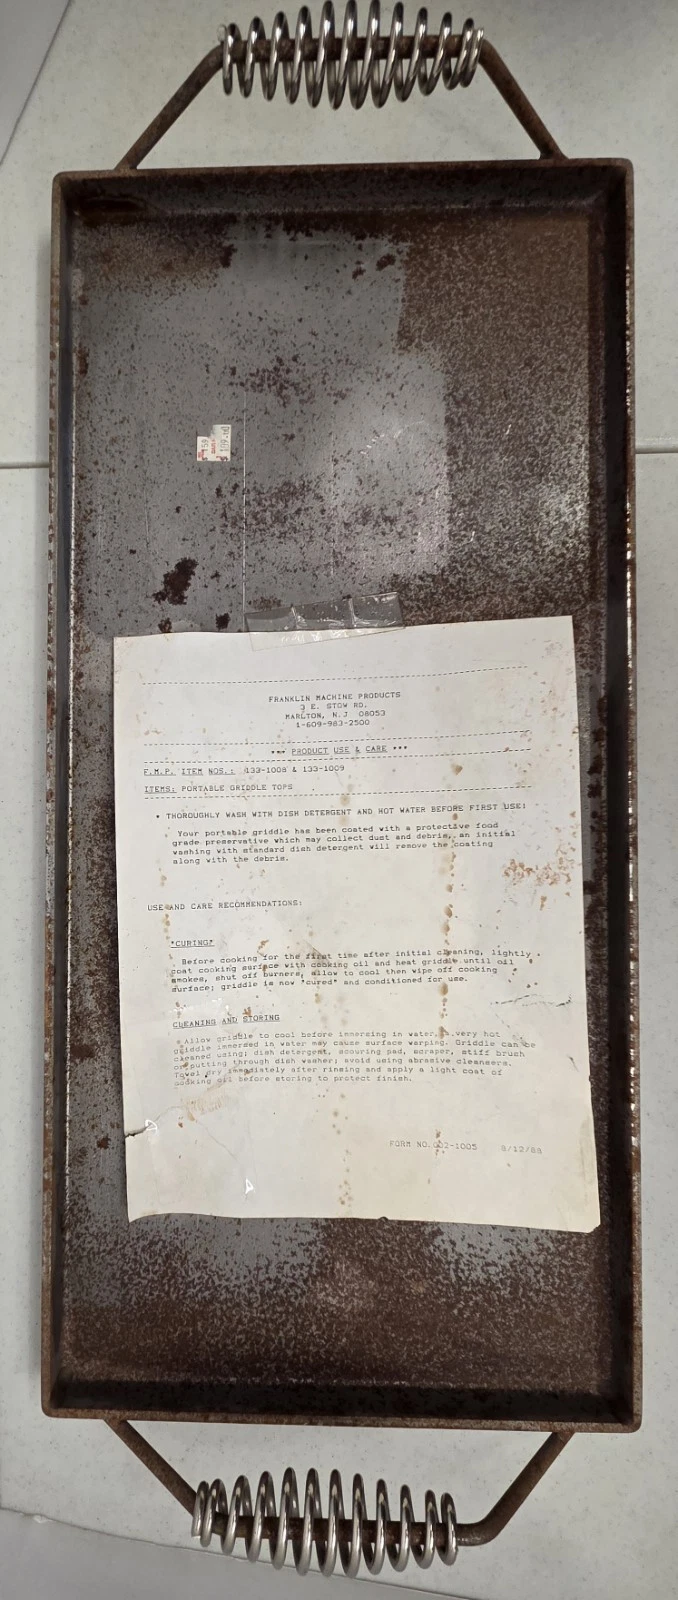 FRANKLIN MACHINE PRODUCTS
3 E. STOW RD.
MARLTON, N.J 08053
1-609-983-2500
*** PRODUCT USE & CARE ***
F.M.P. ITEM NOS.: 133-1008 & 133-1009
ITEMS: PORTABLE GRIDDLE TOPS
• THOROUGHLY WASH WITH DISH DETERGENT AND HOT WATER BEFORE FIRST USE:
Your portable griddle has been coated with a protective food
grade preservative which may collect dust and debris, an initial
washing with standard dish detergent will remove the coating
along with the debris.
USE AND CARE RECOMMENDATIONS:
"CURING"
Before cooking for the first time after initial cleaning, lightly
coat cooking surface with cooking oil and heat griddle until oil
smokes, shut off burners, allow to cool then wipe off cooking
surface; griddle is now "cured" and conditioned for use.
CLEANING AND STORING
Allow griddle to cool before immersing in water, a very hot
griddle immersed in water may cause surface warping. Griddle can be
cleaned using; dish detergent, scouring pad, scraper, stiff brush
or putting through dish washer; avoid using abrasive cleansers.
Towel dry immediately after rinsing and apply a light coat of
cooking oil before storing to protect finish.
FORM NO. 002-1005 8/12/88